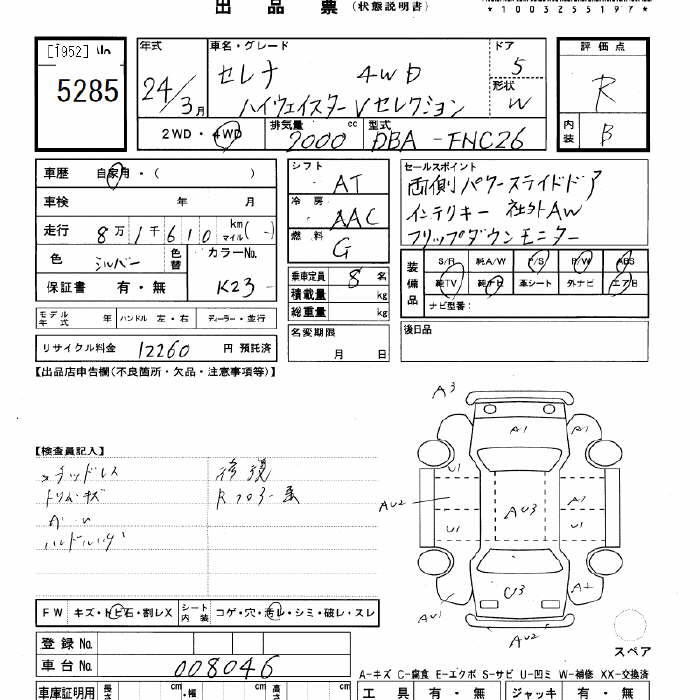 出品票(状態説明書)
*1003255197*
[1952] 5285
年式 24/3月
車名・グレード セレナ 4WD
ハイウェイスター Vセレクション
ドア 5
形状 W
評価点 R
内装 B
2WD・4WD 排気量 2000 cc 型式 DBA-FNC26
車歴 自家用・( )
シフト AT
セールスポイント
両側パワースライドドア
インテリキー 社外AW
フリップダウンモニター
車検 年 月
冷房 AAC
走行 8万1千610 km マイル(-)
燃料 G
色 シルバー 色替 カラーNo. K23
保証書 有・無
乗車定員 8 名
積載量 kg
総重量 kg
装備品 S/R 純A/W P/S P/W ABS
純TV 純ナビ 革シート 外ナビ エアB
ナビ型番:
モデル年式 年 ハンドル 左・右 ディーラー・並行
名変期限 月 日
後日品
リサイクル料金 12260 円 預託済
【出品店申告欄(不良箇所・欠品・注意事項等)】
【検査員記入】
トリム・キズ
A・U
A3
A1
A1 A1
U1 A1
AU2 AU3
U1 U1
U3 A2
AU1 AU2
スペア
FW キズ・トビ石・割レX シート内装 コゲ・穴・汚レ・シミ・破レ・スレ
登録No.
車台No. 008046
A-キズ C-腐食 E-エクボ S-サビ U-凹ミ W-補修 XX-交換済
車庫証明用 長さ cm ・幅 cm cm 工具 有・無 ジャッキ 有・無